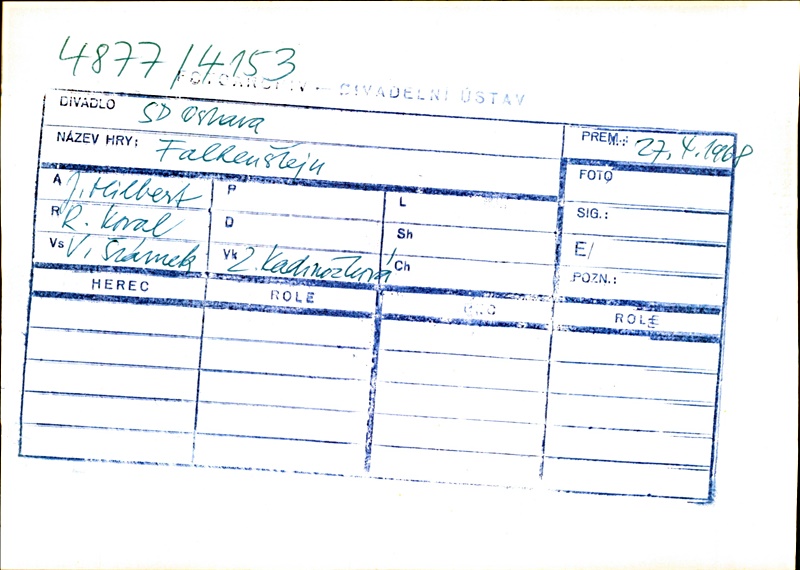 4877/4153
FOTOARCHIV - DIVADELNÍ ÚSTAV
DIVADLO SD Ostrava
PREM.: 27.4.1968
NÁZEV HRY: Falkenštejn
FOTO
A J. Hilbert P L
SIG.:
R R. Koval D Sh
E/
Vs V. Šrámek Vk Z. Kadrnožková Ch
POZN.:
HEREC ROLE ROLE